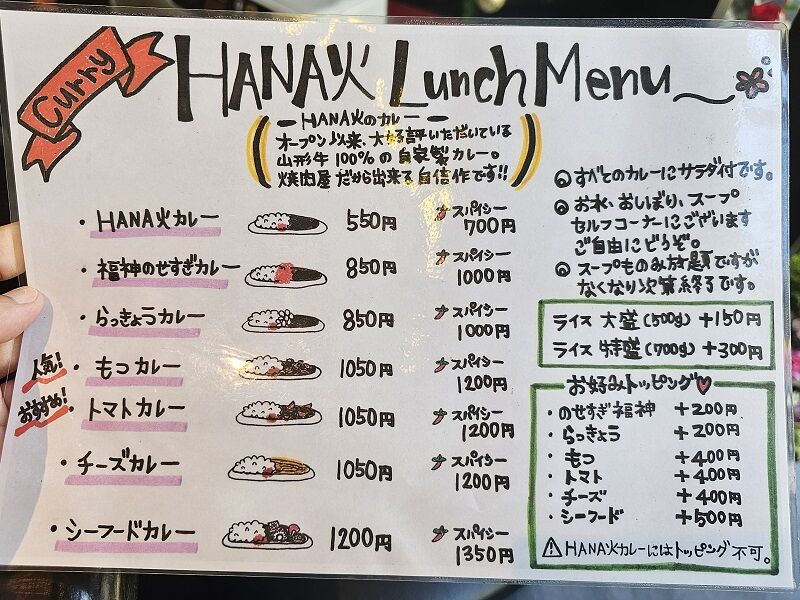 Curry
HANA火 Lunch Menu
HANA火のカレー
オープン以来、大好評いただいている
山形牛100%の自家製カレー。
焼肉屋だから出来る自信作です!!
・HANA火カレー 550円 スパイシー 700円
・福神のせすぎカレー 850円 スパイシー 1000円
・らっきょうカレー 850円 スパイシー 1000円
人気! ・もつカレー 1050円 スパイシー 1200円
おすすめ! ・トマトカレー 1050円 スパイシー 1200円
・チーズカレー 1050円 スパイシー 1200円
・シーフードカレー 1200円 スパイシー 1350円
◎すべてのカレーにサラダ付です。
◎お水、おしぼり、スープ
セルフコーナーにございます
ご自由にどうぞ。
◎スープものみ放題ですが
なくなり次第終了です。
ライス 大盛(500g) +150円
ライス 特盛(700g) +300円
お好みトッピング♡
・のせすぎ福神 +200円
・らっきょう +200円
・もつ +400円
・トマト +400円
・チーズ +400円
・シーフード +500円
⚠HANA火カレーにはトッピング不可。